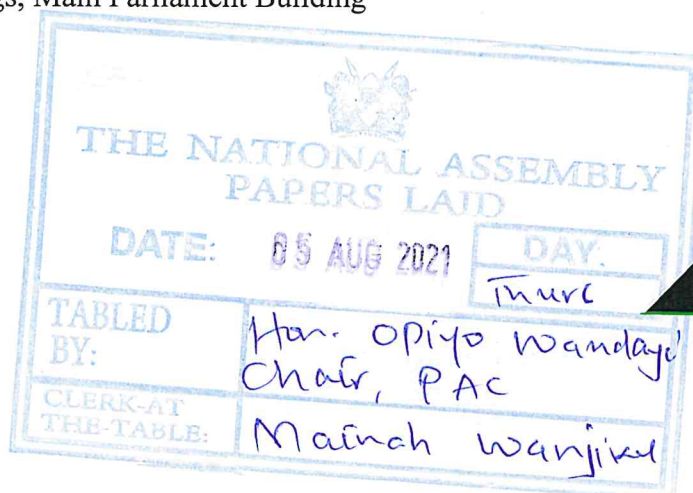 Main Parliament Building
THE NATIONAL ASSEMBLY
PAPERS LAID
DATE: 05 AUG 2021 DAY.
Thurs
TABLED BY: Hon. Opiyo Wandayi
Chair, PAC
CLERK-AT THE-TABLE: Mainah Wanjiku